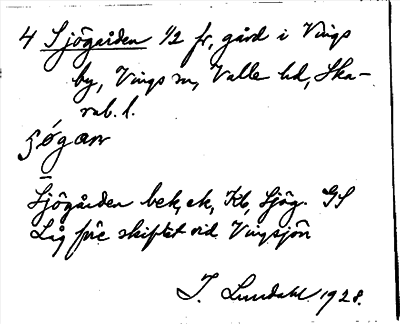 4 Sjögården 1/2 fr, gård i Vings
by, Vings sn, Valle hd, Ska-
rab. l.
Sjögården bek, ek, Kb, Sjög. GS
Låg före skiftet vid Vingsjön
I. Lundahl 1928.